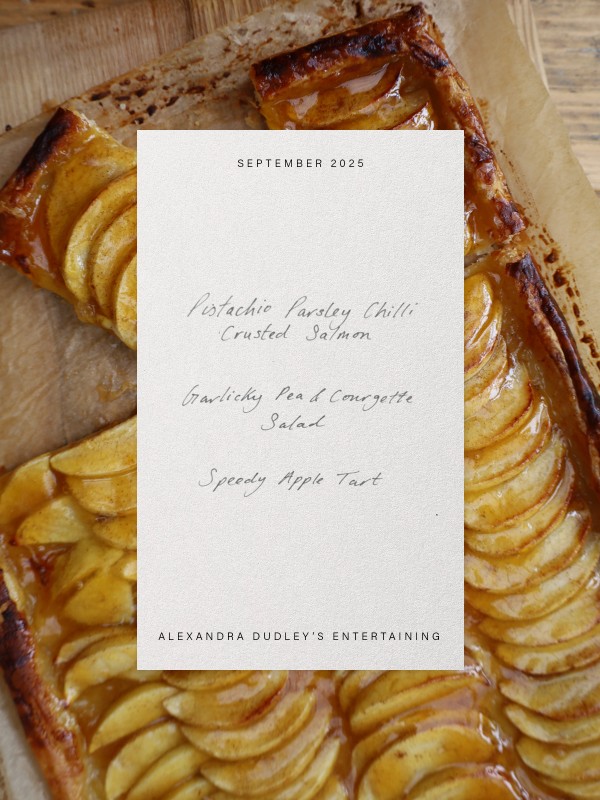 SEPTEMBER 2025
Pistachio Parsley Chilli
Crusted Salmon
Garlicky Pea & Courgette
Salad
Speedy Apple Tart
ALEXANDRA DUDLEY'S ENTERTAINING